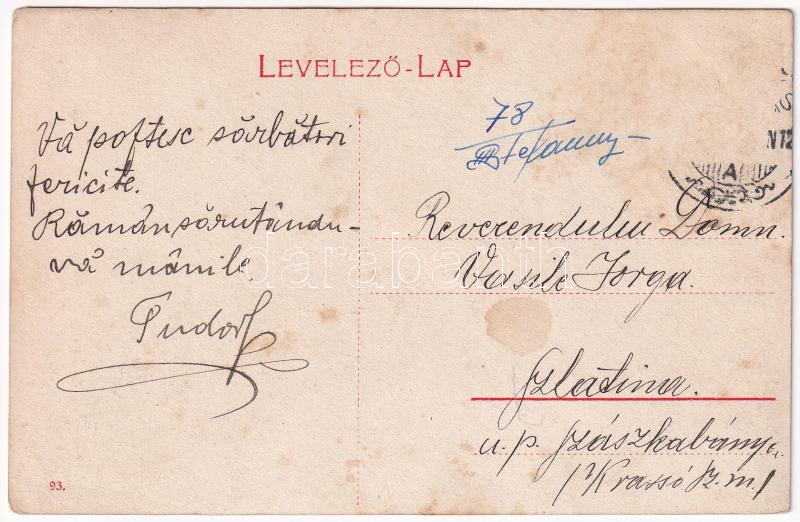 LEVELEZŐ-LAP
Vă poftesc sărbători
fericite.
Rămân sărutându-
vă mânile.
Tudor
78
Reverendului Domn.
Vasile Iorga.
Szlatina.
u. p. Szászkabánya
/Krassó Sz. m./
93.
A
darabanth